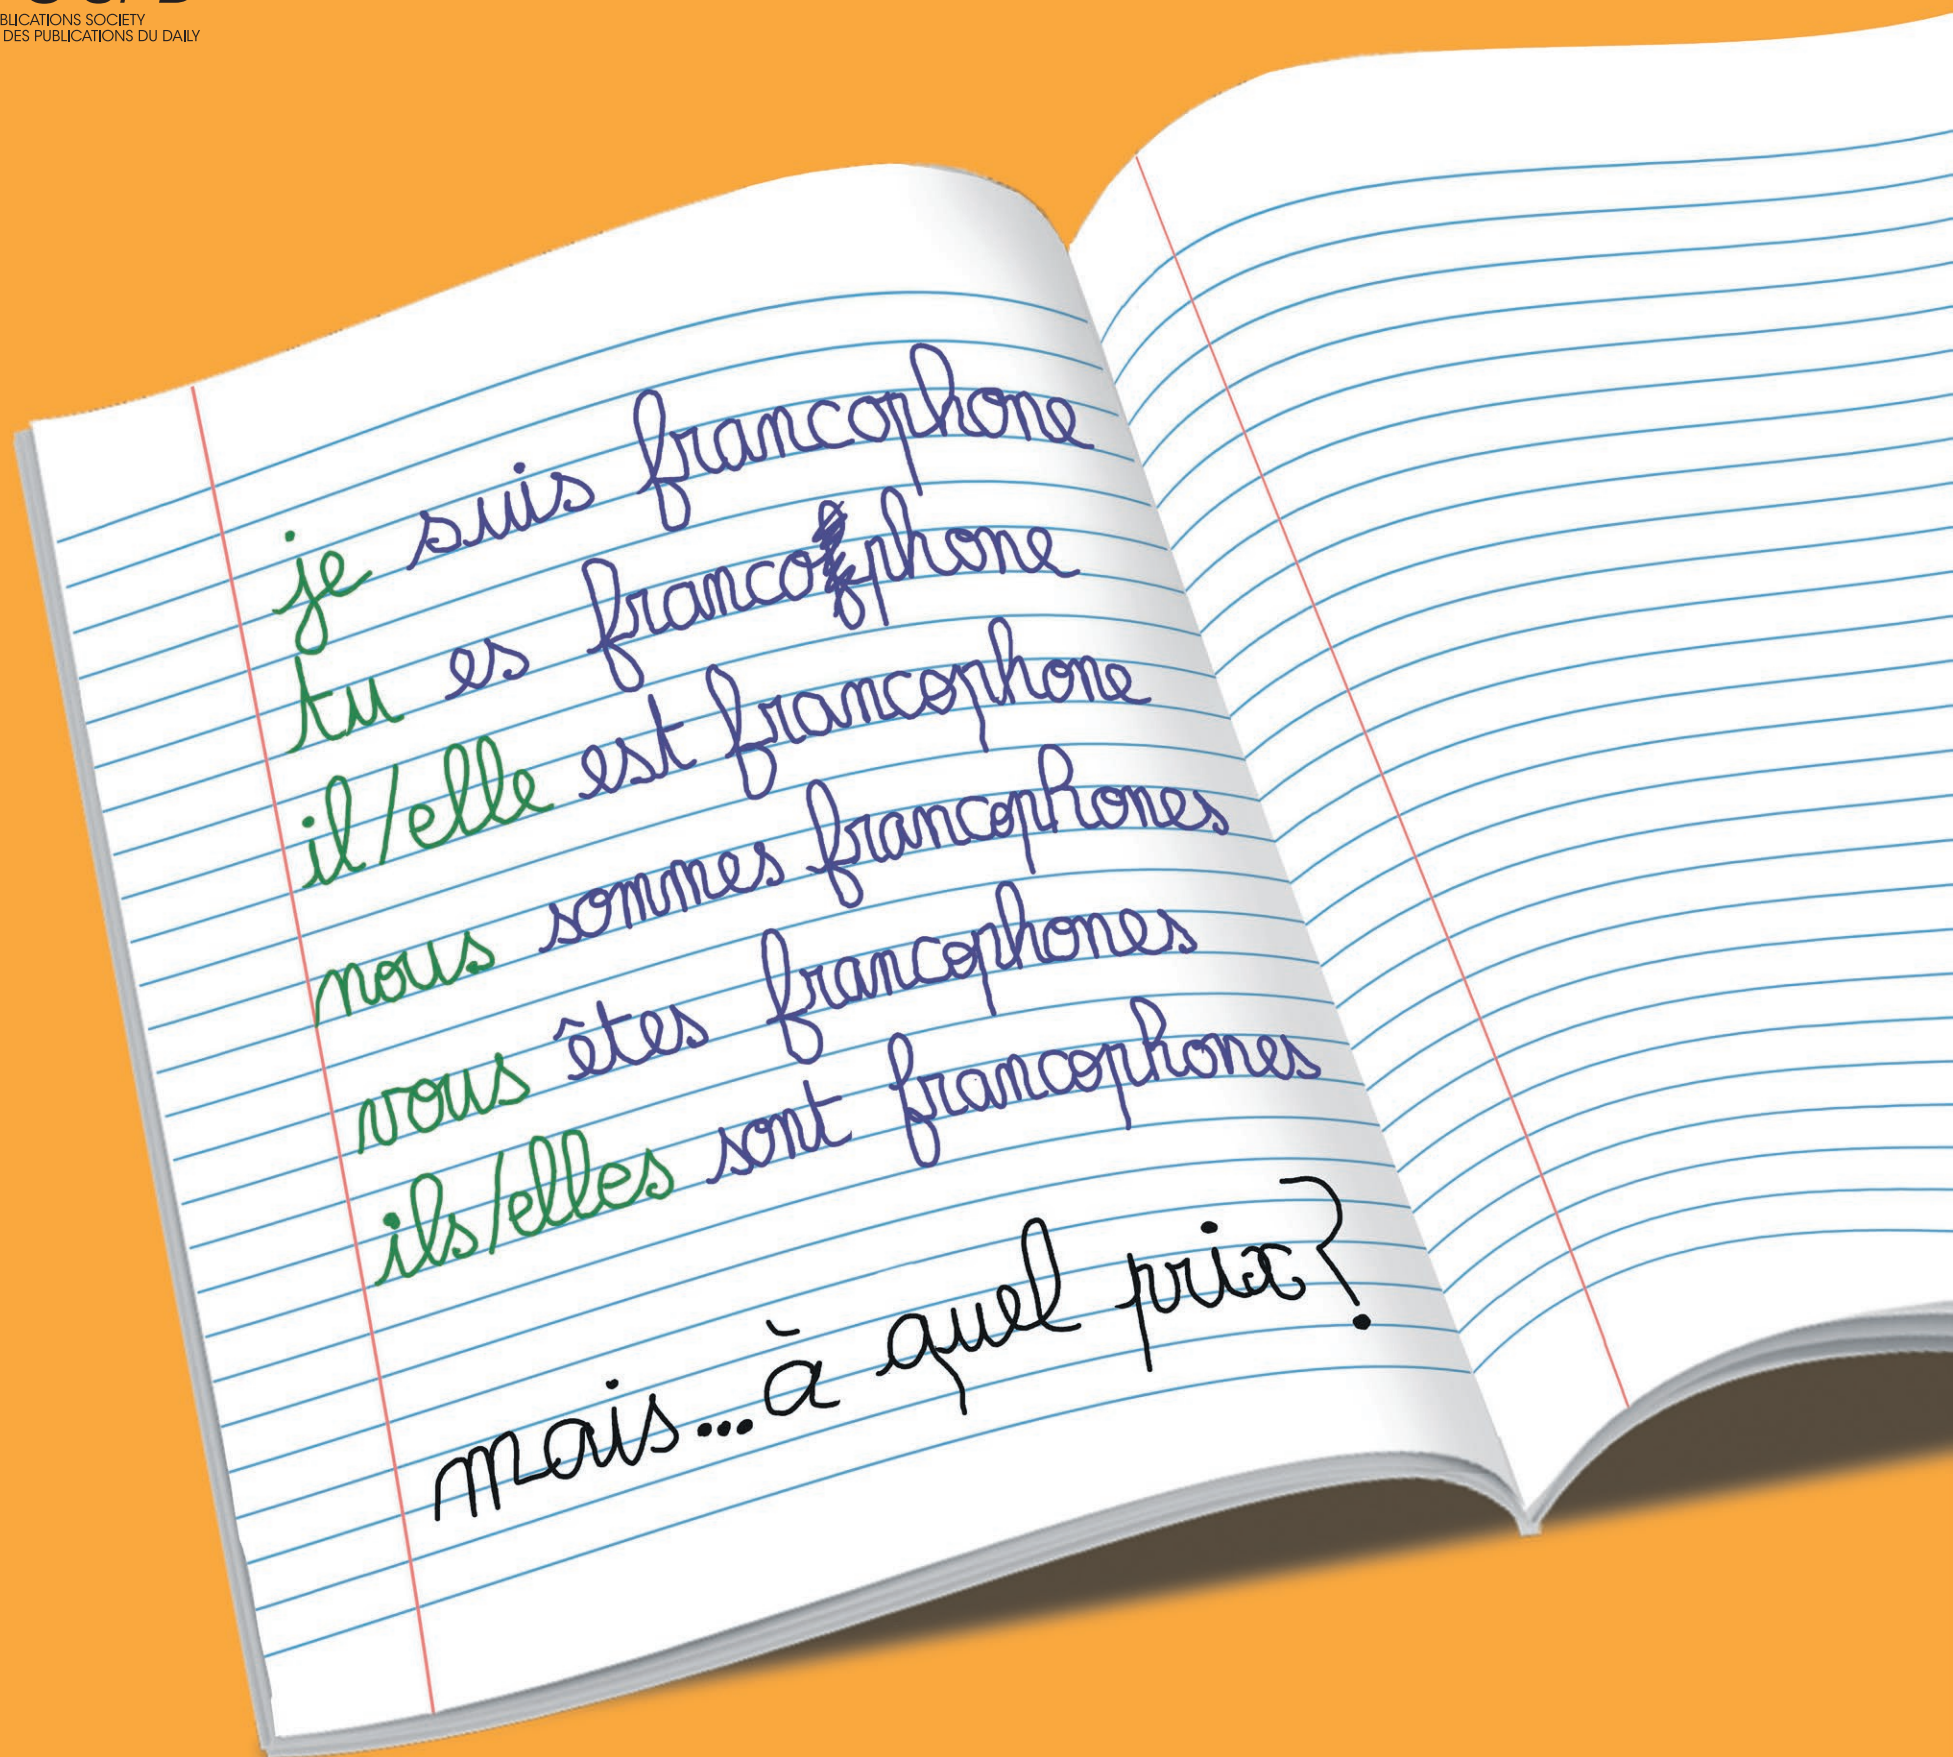 BLICATIONS SOCIETY
DES PUBLICATIONS DU DAILY
je suis francophone
tu es francophone
il/elle est francophone
nous sommes francophones
vous êtes francophones
ils/elles sont francophones
mais...à quel prix?